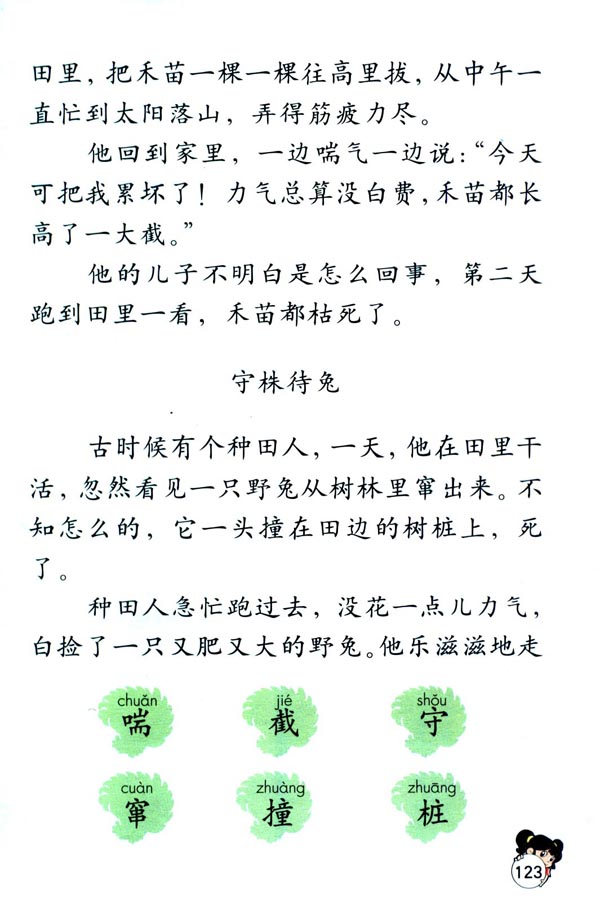 田里，把禾苗一棵一棵往高里拔，从中午一
直忙到太阳落山，弄得筋疲力尽。
他回到家里，一边喘气一边说：“今天
可把我累坏了！力气总算没白费，禾苗都长
高了一大截。”
他的儿子不明白是怎么回事，第二天
跑到田里一看，禾苗都枯死了。
守株待兔
古时候有个种田人，一天，他在田里干
活，忽然看见一只野兔从树林里窜出来。不
知怎么的，它一头撞在田边的树桩上，死
了。
种田人急忙跑过去，没花一点儿力气，
白捡了一只又肥又大的野兔。他乐滋滋地走
chuǎn jié shǒu
喘 截 守
cuàn zhuàng zhuāng
窜 撞 桩
123